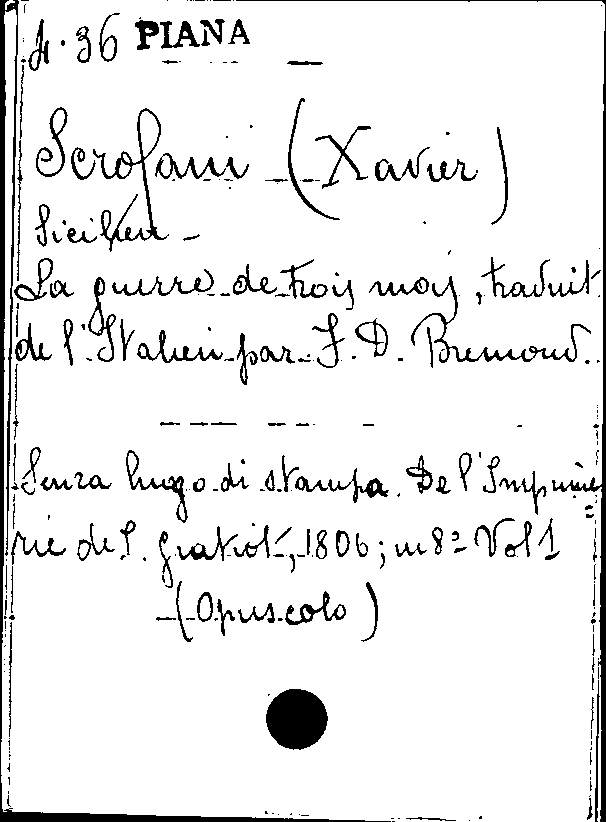 4.36 PIANA
Scrofani (Xavier)
Sicilien -
La guerre de trois mois, traduit
de l'Italien par J. D. Bremond.
Senza luogo di stampa. De l'Imprime=
rie de P. Gratiot, 1806; in 8º Vol 1
(Opuscolo)